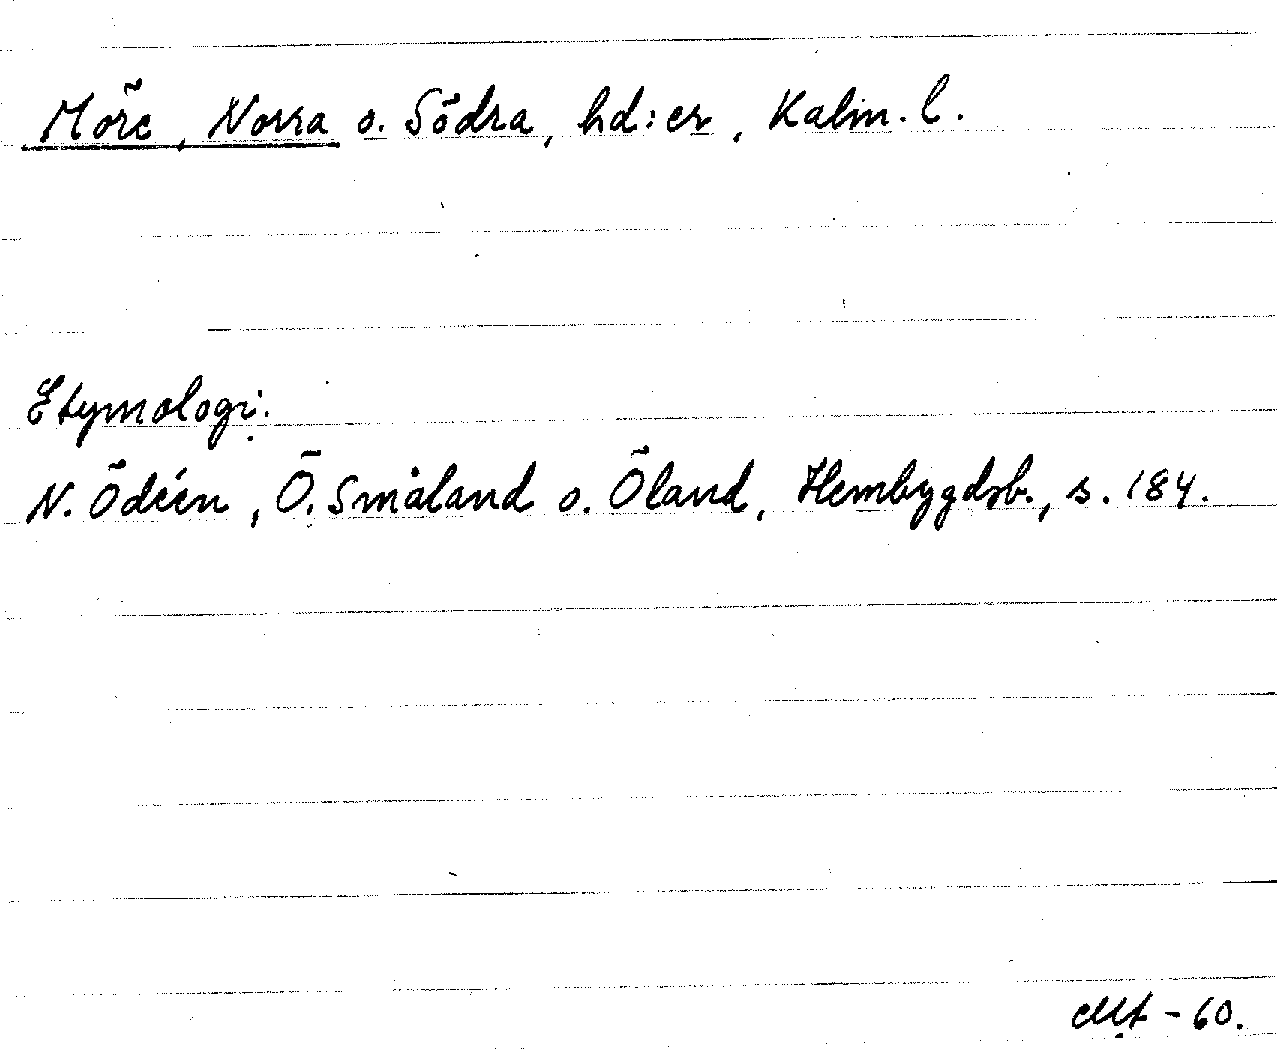 Möre, Norra o. Södra, hd:er, Kalm. l.
Etymologi.
N. Ödéen, Ö. Småland o. Öland, Hembygdsb., s. 184.
-60.